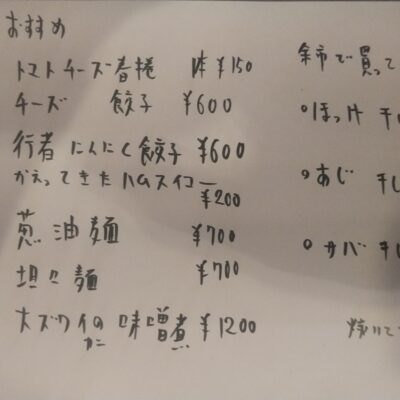 おすすめ
トマトチーズ春捲 1本 ¥150
チーズ 餃子 ¥600
行者にんにく餃子 ¥600
かえってきたハムスイコー
¥200
葱油麺 ¥700
坦々麺 ¥700
ズワイの
カニ 味噌煮 ¥1200
余市で買って
・ほっけ 干し
・あじ 干し
・サバ 干し
焼いて